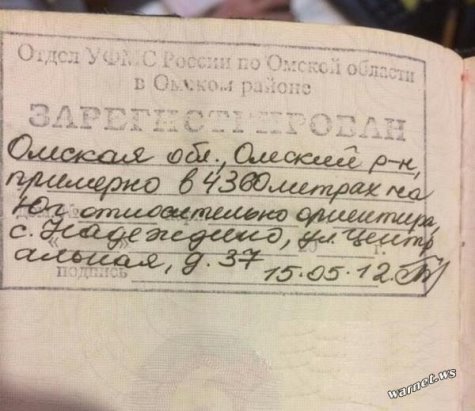 Отдел УФМС России по Омской области
в Омском районе
ЗАРЕГИСТРИРОВАН
Омская обл., Омский р-н,
примерно в 4360 метрах на
юг относительно ориентира,
с. Надеждино, ул. Центр
альная, д. 37
подпись
15.05.12.
warnet.ws